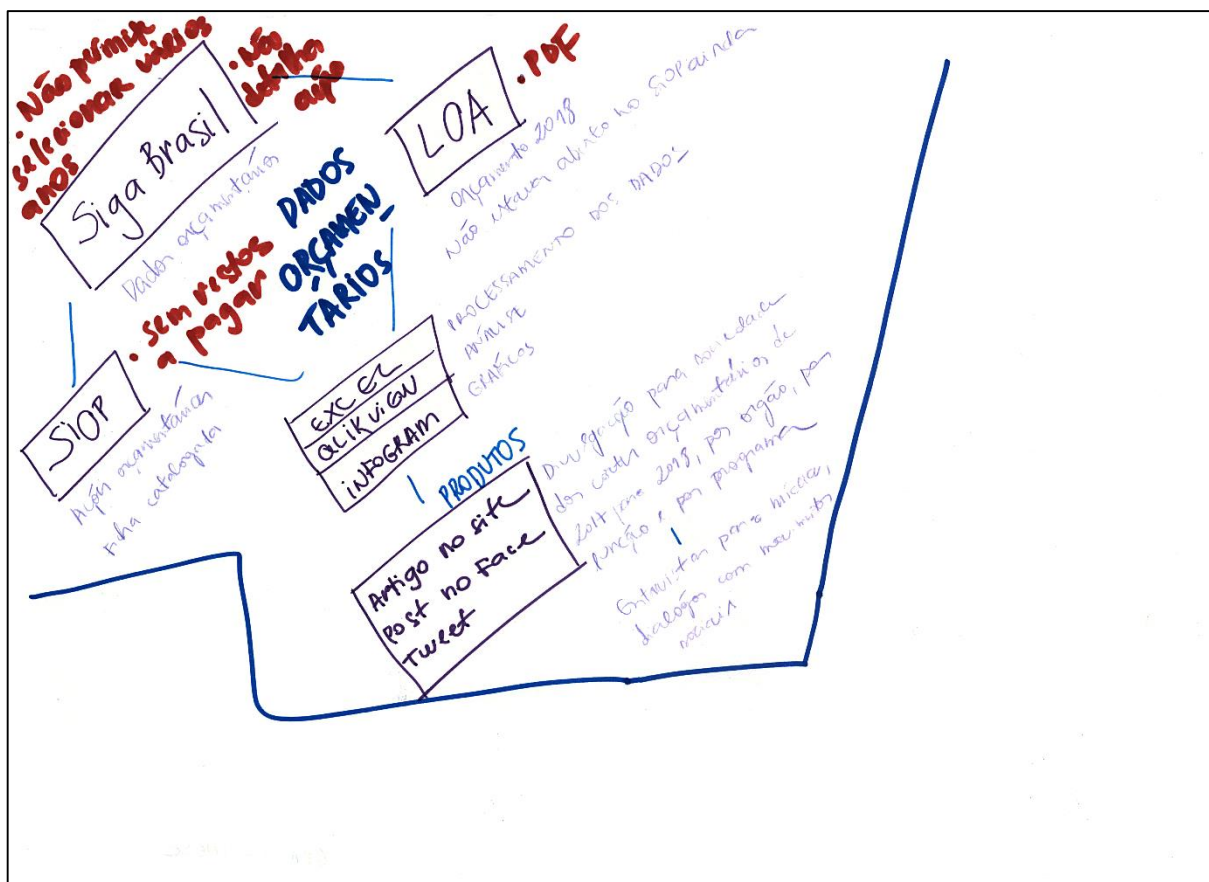 . Não permite
selecionar vários
anos
. Não
detalha
ação
Siga Brasil
Dados orçamentários
LOA
. PDF
Orçamento 2018
Não estava aberto no SIOP ainda
DADOS
ORÇAMEN_
TÁRIOS
. sem restos
a pagar
SIOP
Ações orçamentárias
catalogada
EXCEL
QLIKVIEW
INFOGRAM
PROCESSAMENTO DOS DADOS
ANÁLISE
GRÁFICOS
PRODUTOS
Artigo no site
post no Face
Tweet
Divulgação para sociedade
dos cortes orçamentários de
2017 para 2018, por órgão, por
função e por programa
Entrevistas para mídia,
diálogos com movimentos
sociais